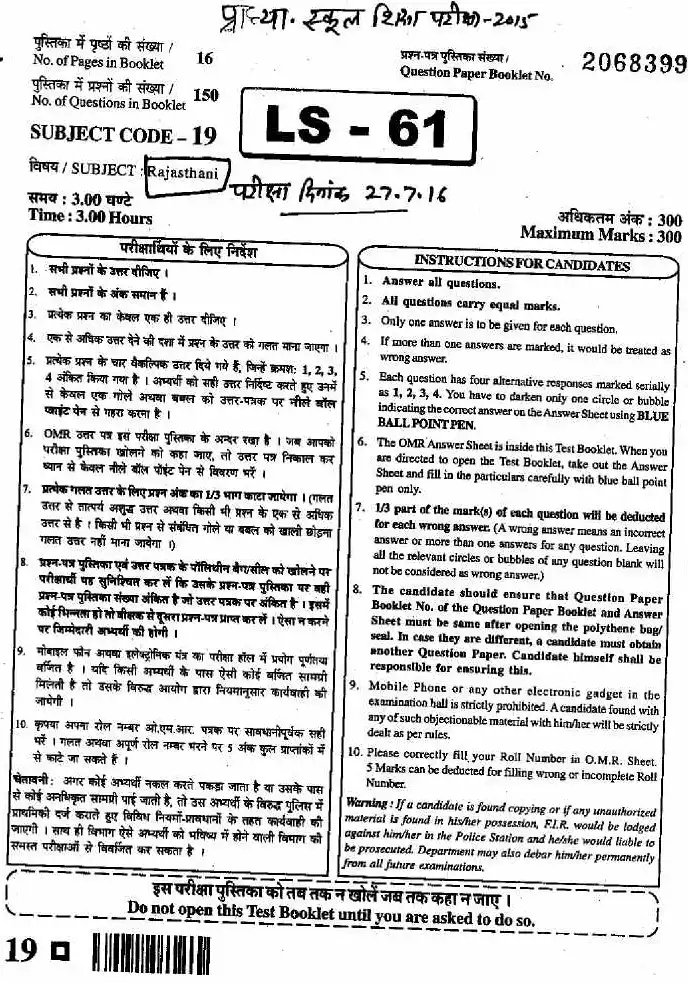 प्राध्या. स्कूल शिक्षा परीक्षा-2015
पुस्तिका में पृष्ठों की संख्या /
No. of Pages in Booklet 16
पुस्तिका में प्रश्नों की संख्या /
No. of Questions in Booklet 150
SUBJECT CODE - 19
विषय / SUBJECT : Rajasthani
समय : 3.00 घण्टे
Time : 3.00 Hours
LS - 61
परीक्षा दिनांक 27.7.16
प्रश्न-पत्र पुस्तिका संख्या /
Question Paper Booklet No. 2068399
अधिकतम अंक : 300
Maximum Marks : 300
परीक्षार्थियों के लिए निर्देश
1. सभी प्रश्नों के उत्तर दीजिए ।
2. सभी प्रश्नों के अंक समान हैं ।
3. प्रत्येक प्रश्न का केवल एक ही उत्तर दीजिए ।
4. एक से अधिक उत्तर देने की दशा में प्रश्न के उत्तर को गलत माना जाएगा ।
5. प्रत्येक प्रश्न के चार वैकल्पिक उत्तर दिये गये हैं, जिन्हें क्रमशः 1, 2, 3,
4 अंकित किया गया है । अभ्यर्थी को सही उत्तर निर्दिष्ट करते हुए उनमें
से केवल एक गोले अथवा बबल को उत्तर-पत्रक पर नीले बॉल
प्वाइंट पेन से गहरा करना है ।
6. OMR उत्तर पत्र इस परीक्षा पुस्तिका के अन्दर रखा है । जब आपको
परीक्षा पुस्तिका खोलने को कहा जाए, तो उत्तर पत्र निकाल कर
ध्यान से केवल नीले बॉल पॉइंट पेन से विवरण भरें ।
7. प्रत्येक गलत उत्तर के लिए प्रश्न अंक का 1/3 भाग काटा जायेगा । (गलत
उत्तर से तात्पर्य अशुद्ध उत्तर अथवा किसी भी प्रश्न के एक से अधिक
उत्तर से है । किसी भी प्रश्न से संबंधित गोले या बबल को खाली छोड़ना
गलत उत्तर नहीं माना जावेगा ।)
8. प्रश्न-पत्र पुस्तिका एवं उत्तर पत्रक के पॉलिथीन बैग/सील को खोलने पर
परीक्षार्थी यह सुनिश्चित कर लें कि उसके प्रश्न-पत्र पुस्तिका पर वही
प्रश्न-पत्र पुस्तिका संख्या अंकित है जो उत्तर पत्रक पर अंकित है । इसमें
कोई भिन्नता हो तो वीक्षक से दूसरा प्रश्न-पत्र प्राप्त कर लें । ऐसा न करने
पर जिम्मेदारी अभ्यर्थी की होगी ।
9. मोबाइल फोन अथवा इलेक्ट्रोनिक यंत्र का परीक्षा हॉल में प्रयोग पूर्णतया
वर्जित है । यदि किसी अभ्यर्थी के पास ऐसी कोई वर्जित सामग्री
मिलती है तो उसके विरुद्ध आयोग द्वारा नियमानुसार कार्यवाही की
जायेगी ।
10. कृपया अपना रोल नम्बर ओ.एम.आर. पत्रक पर सावधानीपूर्वक सही
भरें । गलत अथवा अपूर्ण रोल नम्बर भरने पर 5 अंक कुल प्राप्तांकों में
से काटे जा सकते हैं ।
चेतावनी : अगर कोई अभ्यर्थी नकल करते पकड़ा जाता है या उसके पास
से कोई अनधिकृत सामग्री पाई जाती है, तो उस अभ्यर्थी के विरुद्ध पुलिस में
प्राथमिकी दर्ज कराते हुए विविध नियमों-प्रावधानों के तहत कार्यवाही की
जाएगी । साथ ही विभाग ऐसे अभ्यर्थी को भविष्य में होने वाली विभाग की
समस्त परीक्षाओं से विवर्जित कर सकता है ।
INSTRUCTIONS FOR CANDIDATES
1. Answer all questions.
2. All questions carry equal marks.
3. Only one answer is to be given for each question.
4. If more than one answers are marked, it would be treated as
wrong answer.
5. Each question has four alternative responses marked serially
as 1, 2, 3, 4. You have to darken only one circle or bubble
indicating the correct answer on the Answer Sheet using BLUE
BALL POINT PEN.
6. The OMR Answer Sheet is inside this Test Booklet. When you
are directed to open the Test Booklet, take out the Answer
Sheet and fill in the particulars carefully with blue ball point
pen only.
7. 1/3 part of the mark(s) of each question will be deducted
for each wrong answer. (A wrong answer means an incorrect
answer or more than one answers for any question. Leaving
all the relevant circles or bubbles of any question blank will
not be considered as wrong answer.)
8. The candidate should ensure that Question Paper
Booklet No. of the Question Paper Booklet and Answer
Sheet must be same after opening the polythene bag/
seal. In case they are different, a candidate must obtain
another Question Paper. Candidate himself shall be
responsible for ensuring this.
9. Mobile Phone or any other electronic gadget in the
examination hall is strictly prohibited. A candidate found with
any of such objectionable material with him/her will be strictly
dealt as per rules.
10. Please correctly fill your Roll Number in O.M.R. Sheet.
5 Marks can be deducted for filling wrong or incomplete Roll
Number.
Warning : If a candidate is found copying or if any unauthorized
material is found in his/her possession, F.I.R. would be lodged
against him/her in the Police Station and he/she would liable to
be prosecuted. Department may also debar him/her permanently
from all future examinations.
इस परीक्षा पुस्तिका को तब तक न खोलें जब तक कहा न जाए ।
Do not open this Test Booklet until you are asked to do so.
19